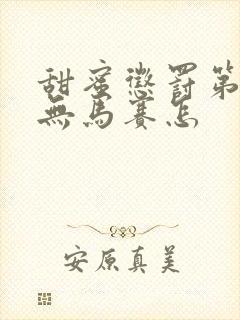 甜蜜懲罰第
無馬賽怎
安原真美